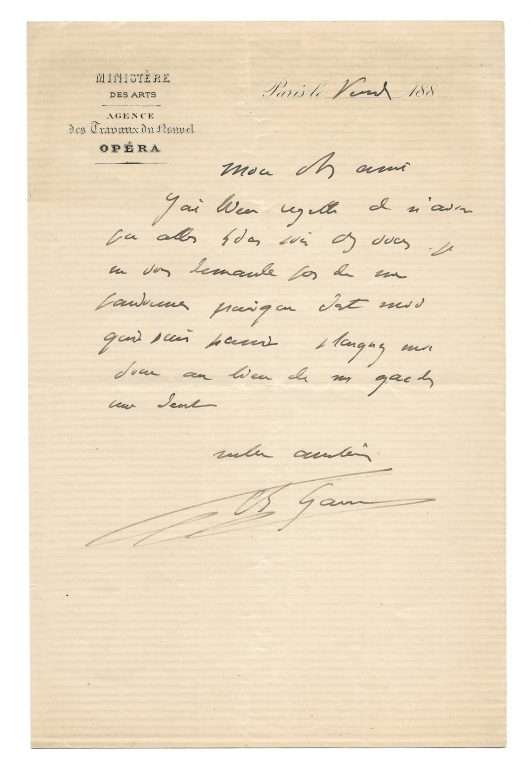 MINISTÈRE
DES ARTS
AGENCE
des Travaux du Nouvel
OPÉRA
Paris le Vend 188
Mon ch ami
J'ai bien regretté de n'avoir
pu aller hier soir chez vous. je
ne vous demande pas de me
pardonner puisque c'est moi
qui suis puni plaignez moi
donc au lieu de me garder
une dent
Ch Garnier